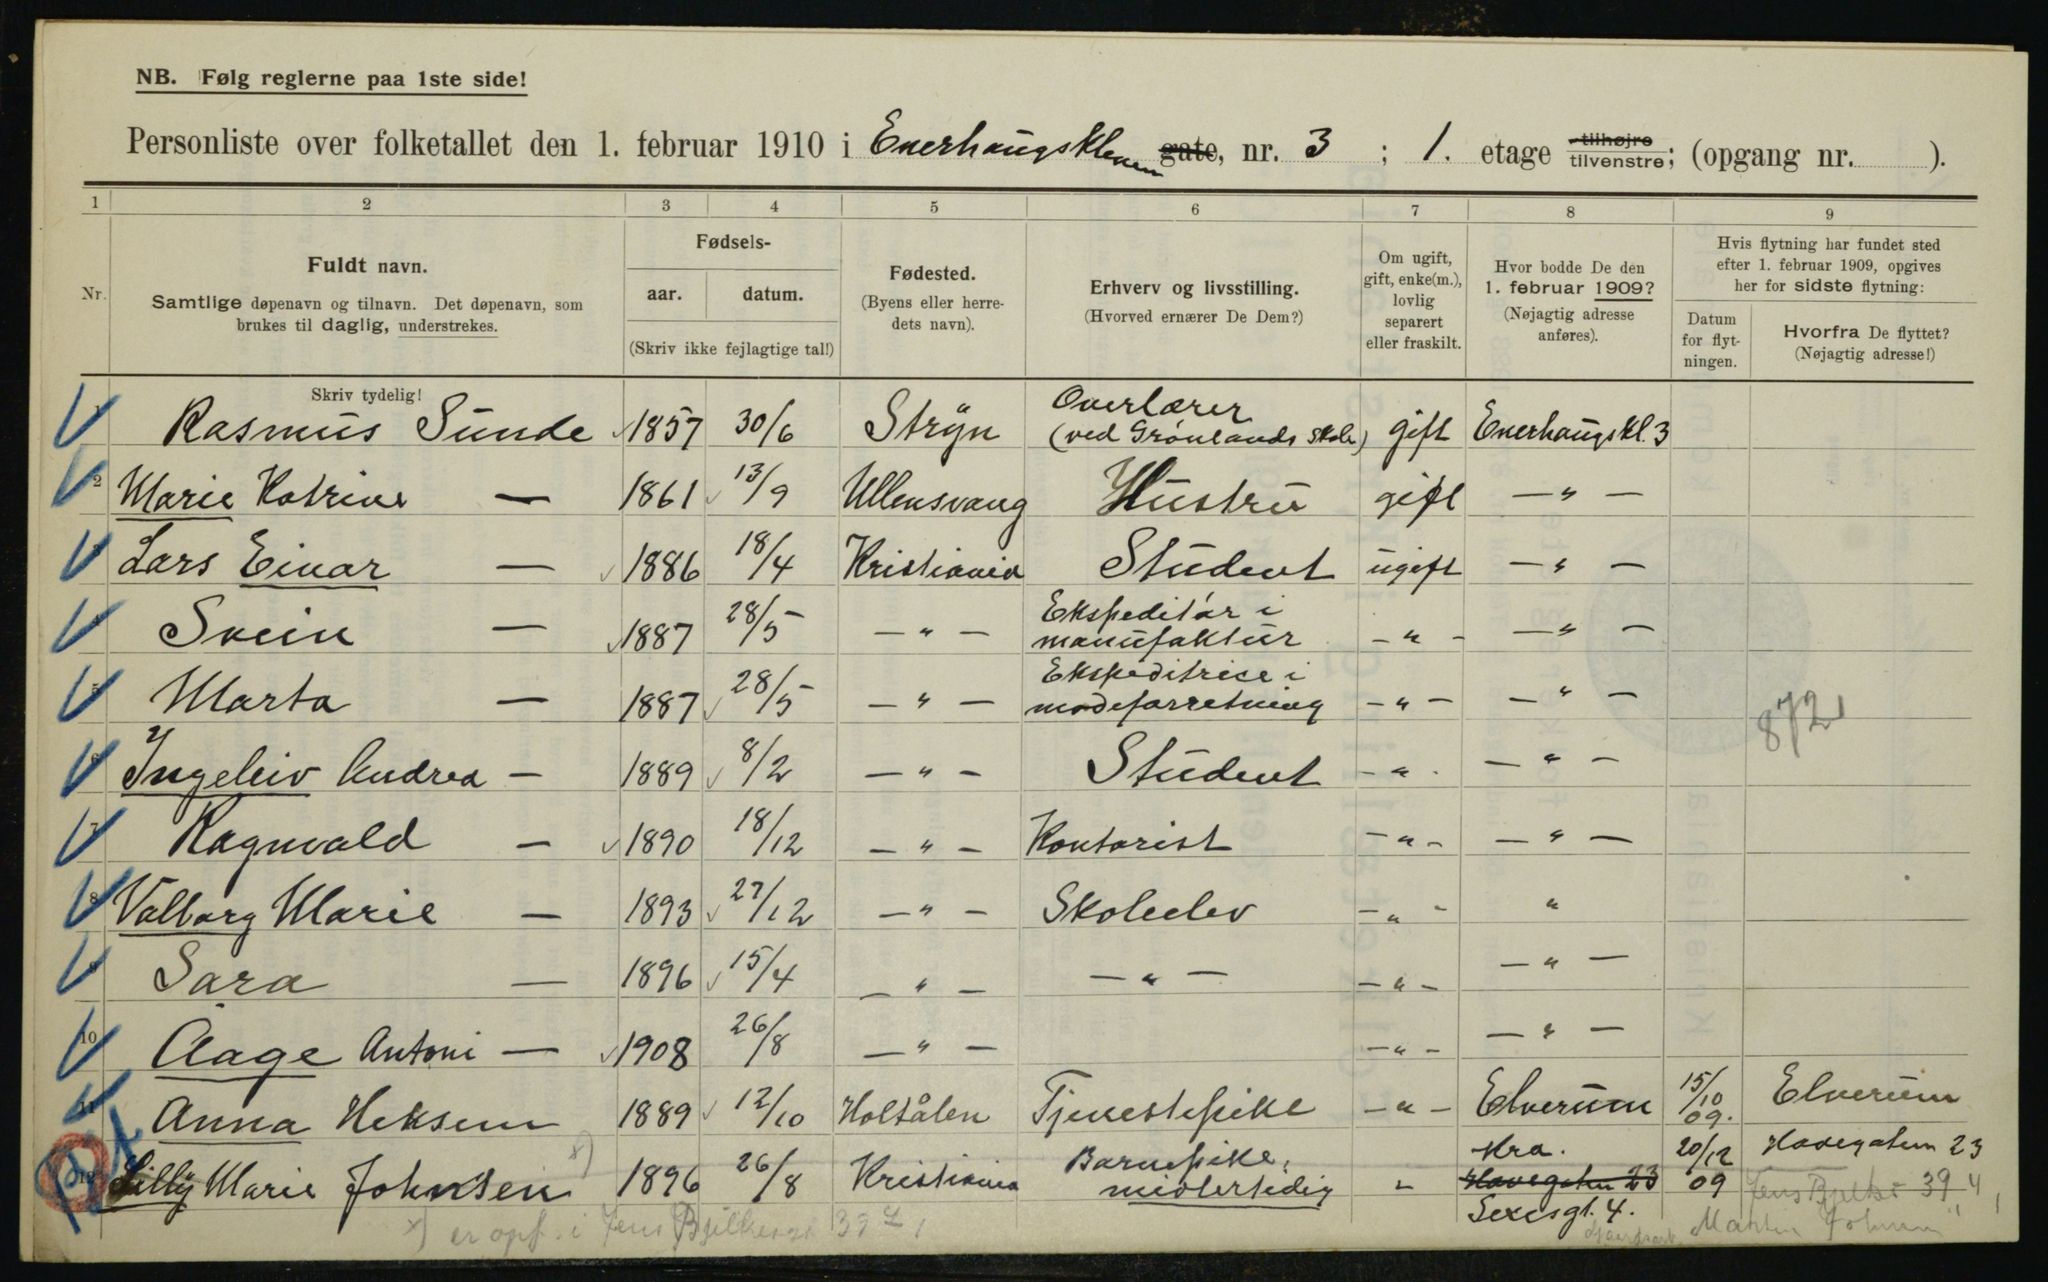 NB. Følg reglerne paa 1ste side!
Personliste over folketallet den 1. februar 1910 i Enerhaugskleven gate, nr. 3 ; 1. etage tilhøjre tilvenstre; (opgang nr. ).
1 2 3 4 5 6 7 8 9
Nr.
Fuldt navn.
Samtlige døpenavn og tilnavn. Det døpenavn, som
brukes til daglig, understrekes.
Skriv tydelig!
Fødsels-
aar. datum.
(Skriv ikke fejlagtige tal!)
Fødested.
(Byens eller herre-
dets navn).
Erhverv og livsstilling.
(Hvorved ernærer De Dem?)
Om ugift,
gift, enke(m.),
lovlig
separert
eller fraskilt.
Hvor bodde De den
1. februar 1909?
(Nøjagtig adresse
anføres).
Hvis flytning har fundet sted
efter 1. februar 1909, opgives
her for sidste flytning:
Datum
for flyt-
ningen.
Hvorfra De flyttet?
(Nøjagtig adresse!)
1 Rasmus Sunde 1857 30/6 Strÿn Overlærer (ved Grønlands skole) gift Enerhaugskl. 3
2 Marie Katrine — 1861 13/9 Ullensvang Hustru gift — " —
3 Lars Einar — 1886 18/4 Kristiania Student ugift — " —
4 Svein — 1887 28/5 — " — Ekspeditør i manufaktur — " — — " —
5 Marta — 1887 28/5 — " — Ekspeditrise i modeforretning — " — — " —
6 Ingeleiv Andrea — 1889 8/2 — " — Student — " — — " —
7 Ragnvald — 1890 18/12 — " — Kontorist — " — — " —
8 Valborg Marie — 1893 27/12 — " — Skoleelev — " — "
9 Sara — 1896 15/4 — " — — " — — " — — " —
10 Aage Antoni — 1908 26/8 — " — — " — — " —
11 Anna Heksem 1889 12/10 Holtålen Tjenestepike — " — Elverum 15/10 09. Elverum
12 Lilly Marie Johnsen x) 1896 26/8 Kristiania Barnepike, midlertidig " Kra. Havegaten 23 Sexesgt. 4. 20/12 09 Havegaten 23
872
Jens Bjelkes 39 4
x) er opf. i Jens Bjelkesgt 39 4
Martin Johnsen